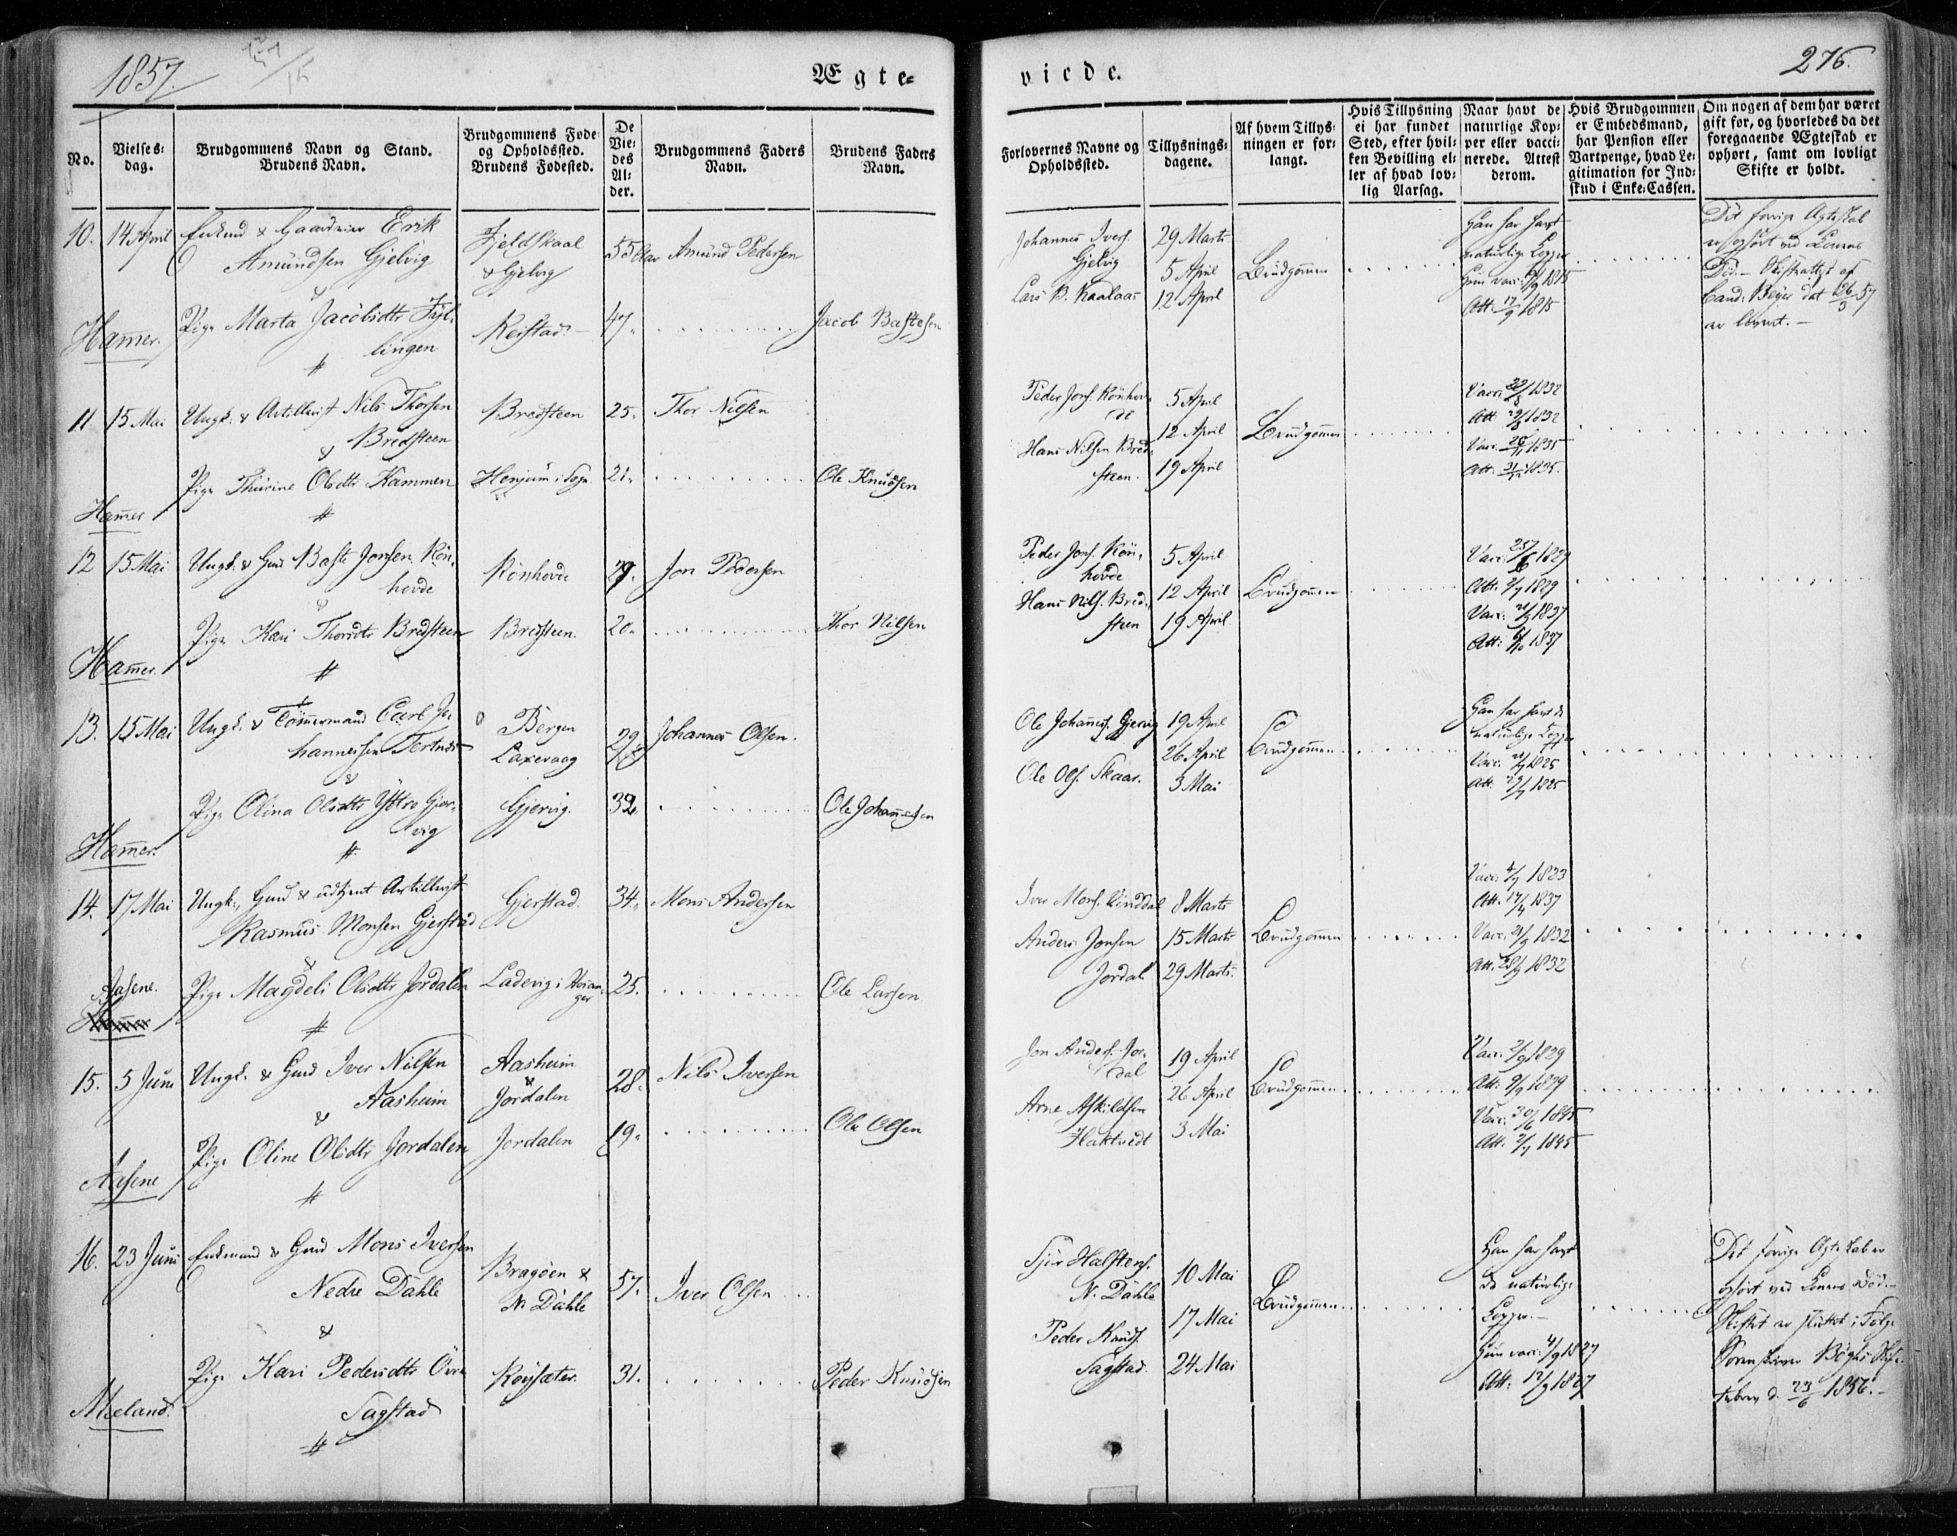 1857.
Ægte-
viede.
276.
No.
Vielses-
dag.
Brudgommens Navn og Stand.
Brudens Navn.
Brudgommens Føde-
og Opholdssted.
Brudens Fødested.
De
Vie-
des
Al-
der.
Brudgommens Faders
Navn.
Brudens Faders
Navn.
Forlovernes Navne og
Opholdssted.
Tillysnings-
dagene.
Af hvem Tillys-
ningen er for-
langt.
Hvis Tillysning
ei har fundet
Sted, efter hvil-
ken Bevilling el-
ler af hvad lov-
lig Aarsag.
Naar havt de
naturlige Kop-
per eller vacci-
nerede. Attest
derom.
Hvis Brudgommen
er Embedsmand,
har Pension eller
Vartpenge, hvad Le-
gitimation for Ind-
skud i Enke-Cassen.
Om nogen af dem har været
gift før, og hvorledes da det
foregaaende Ægteskab er
ophørt, samt om lovligt
Skifte er holdt.
10. 14 April Enkmd & Gaardmd Erik
Amundsen Gjelvig
&
Pige Marta Jacobsdtr Fyl-
lingen
Hamer.
Fjeldskaal
& Gjelvig
Reistad
55
47.
Amund Pedersen
Jacob Bastesen
Johannes Ivers.
Gjelvig
Lars B. Kaalaas
29 Marts
5 April
12 April
Brudgommen
Han har havt
naturlige Kopper
Hun vacc: 1815
Att. 1815
Det forrige Ægteskab
er ophørt ved Konens
Død. Skifteattest af
Cand: Beyer dat 26/3 57
er leveret.
11 15 Mai Ungk: & Artillerist Nils Thorsen
& Bredsteen
Pige Thurine Olsdtr Kammen
Hamer
Bredsteen
Henjum i Sogn
25.
21.
Thor Nilsen
Ole Knudsen
Peder Jons. Rönhov-
de
Hans Nilsen Bred-
steen.
5 April
12 April
19 April
Brudgommen
Vacc: 1832
Att: 1832
Vacc: 1835
Att: 1835.
12 15 Mai Ungk. & Gmd Baste Jonsen Rön-
hovde
&
Pige Kari Thorsdtr Bredsteen
Hamer.
Rönhovde
Bredsteen.
29.
20.
Jon Pedersen
Thor Nilsen
Peder Jons. Rön-
hovde
Hans Nils. Bred-
steen
5 April
12 April
19 April
Brudgommen
Vacc: 1829
Att: 1829
Vacc: 1837
Att: 1837
13. 15 Mai Ungk. & Tömmermand Carl Jo-
hannessen Tertnæs
&
Pige Olina Olsdtr Ytre Gjer-
vig
Hamer.
Bergen
Laxevaag
Gjervig.
29
32
Johannes Olsen.
Ole Johannesen
Ole Johannes. Gjervig
Ole Ols. Skaar.
19 April
26 April
3 Mai
Brudgommen
Han har havt de
naturlige Kopper
Vacc: 1825
Att: 1825
14. 17 Mai Ungk., Gmd & udtjent Artillerist
Rasmus Monsen Gjerstad
&
Pige Magdeli Olsdtr Jordalen
Aasene.
Gjerstad.
Ladevig i Hvian-
ger
34.
25.
Mons Andersen
Ole Larsen
Iver Mons. Vinddal
Anders Jonsen
Jordal
8 Marts
15 Marts
29 Marts.
Brudgommen
Vacc: 1823
Att: 1837
Vacc: 1832
Att: 1832
15. 5 Juni Ungk. & Gmd Iver Nilsen
Aasheim
&
Pige Oline Olsdtr Jordalen
Aasene
Aasheim
&
Jordalen
Jordalen
28.
19.
Nils Iversen
Ole Olsen
Jon Anders. Jor-
dal
Arne Askildsen
Haktvedt
19 April
26 April
3 Mai
Brudgommen
Vacc: 1829
Att: 1829
Vacc: 1845
Att. 1845
16. 23 Juni Enkmand & Gmd Mons Iversen
Nedre Dahle
&
Pige Kari Pedersdtr Övre
Sagstad
Meeland.
Bragöen &
N. Dahle
Röysæter.
57.
31.
Iver Olsen
Peder Knudsen
Halstens.
N. Dahle
Peder Knuds.
Sagstad.
10 Mai
17 Mai
24 Mai
Brudgommen
Han har havt
de naturlige
Kopper.
Hun vacc: 1827
Att: 1827
Det forrige Ægteskab er
ophört ved Konens Död.
Skiftet er sluttet i Fölge
Sorenskriver Böghs
d. 23/6 1856.